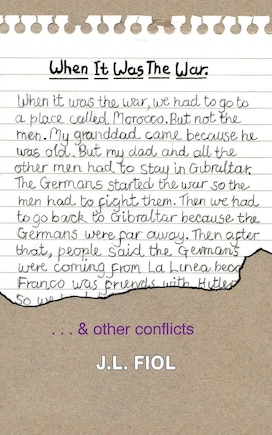 When It Was The War.
When it was the war, we had to go to
a place called Morocco. But not the
men. My granddad came because he
was old. But my dad and all the
other men had to stay in Gibraltar.
The Germans started the war so the
men had to fight them. Then we had
to go back to Gibraltar because the
Germans were far away. Then after
that, people said the Germans
were coming from La Linea
Franco was friends with Hitler
so we
. . . & other conflicts
J.L. FIOL